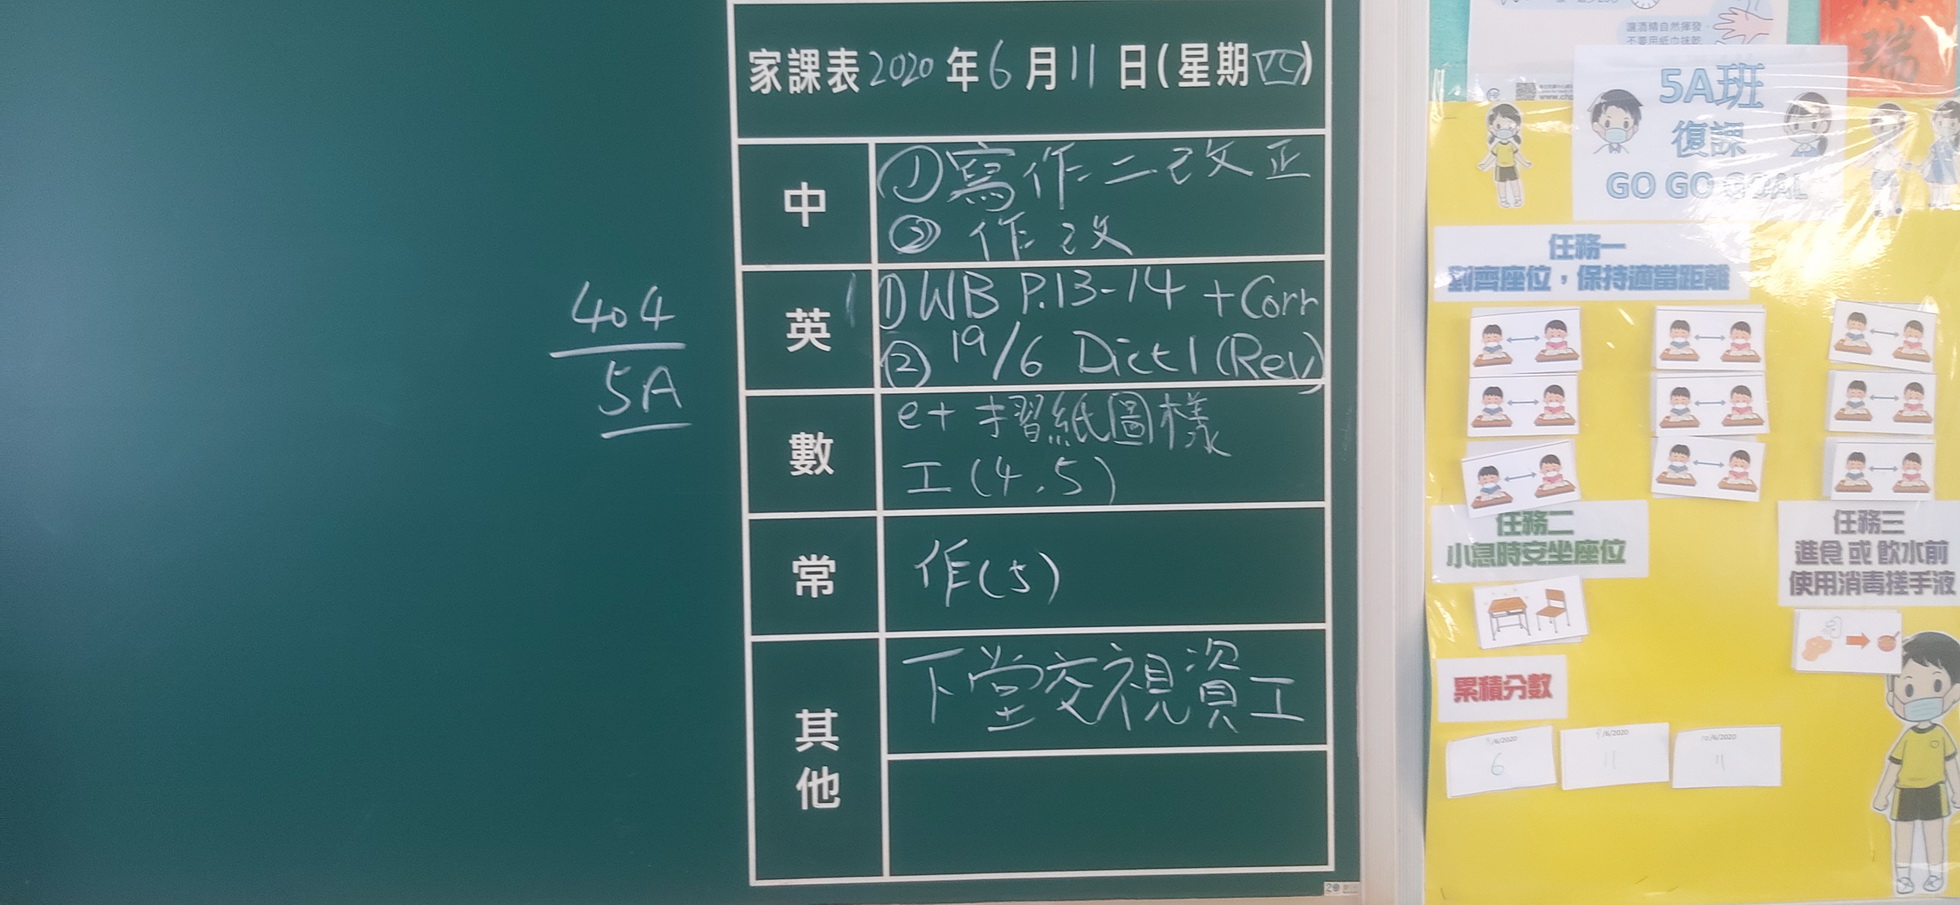 家課表2020年6月11日(星期四)
中
①寫作二改正
②作改
英
①WB P.13-14 +Corr
②19/6 Dict 1 (Rev)
數
e+ 摺紙圖樣
工(4.5)
常
作(5)
其他
下堂交視資工
404
5A
讓酒精自然揮發,
不要用紙巾抹乾
瑞
5A班
復課
GO GO GOAL
任務一
對齊座位，保持適當距離
任務二
小息時安坐座位
任務三
進食 或 飲水前
使用消毒搓手液
累積分數
6
11
11